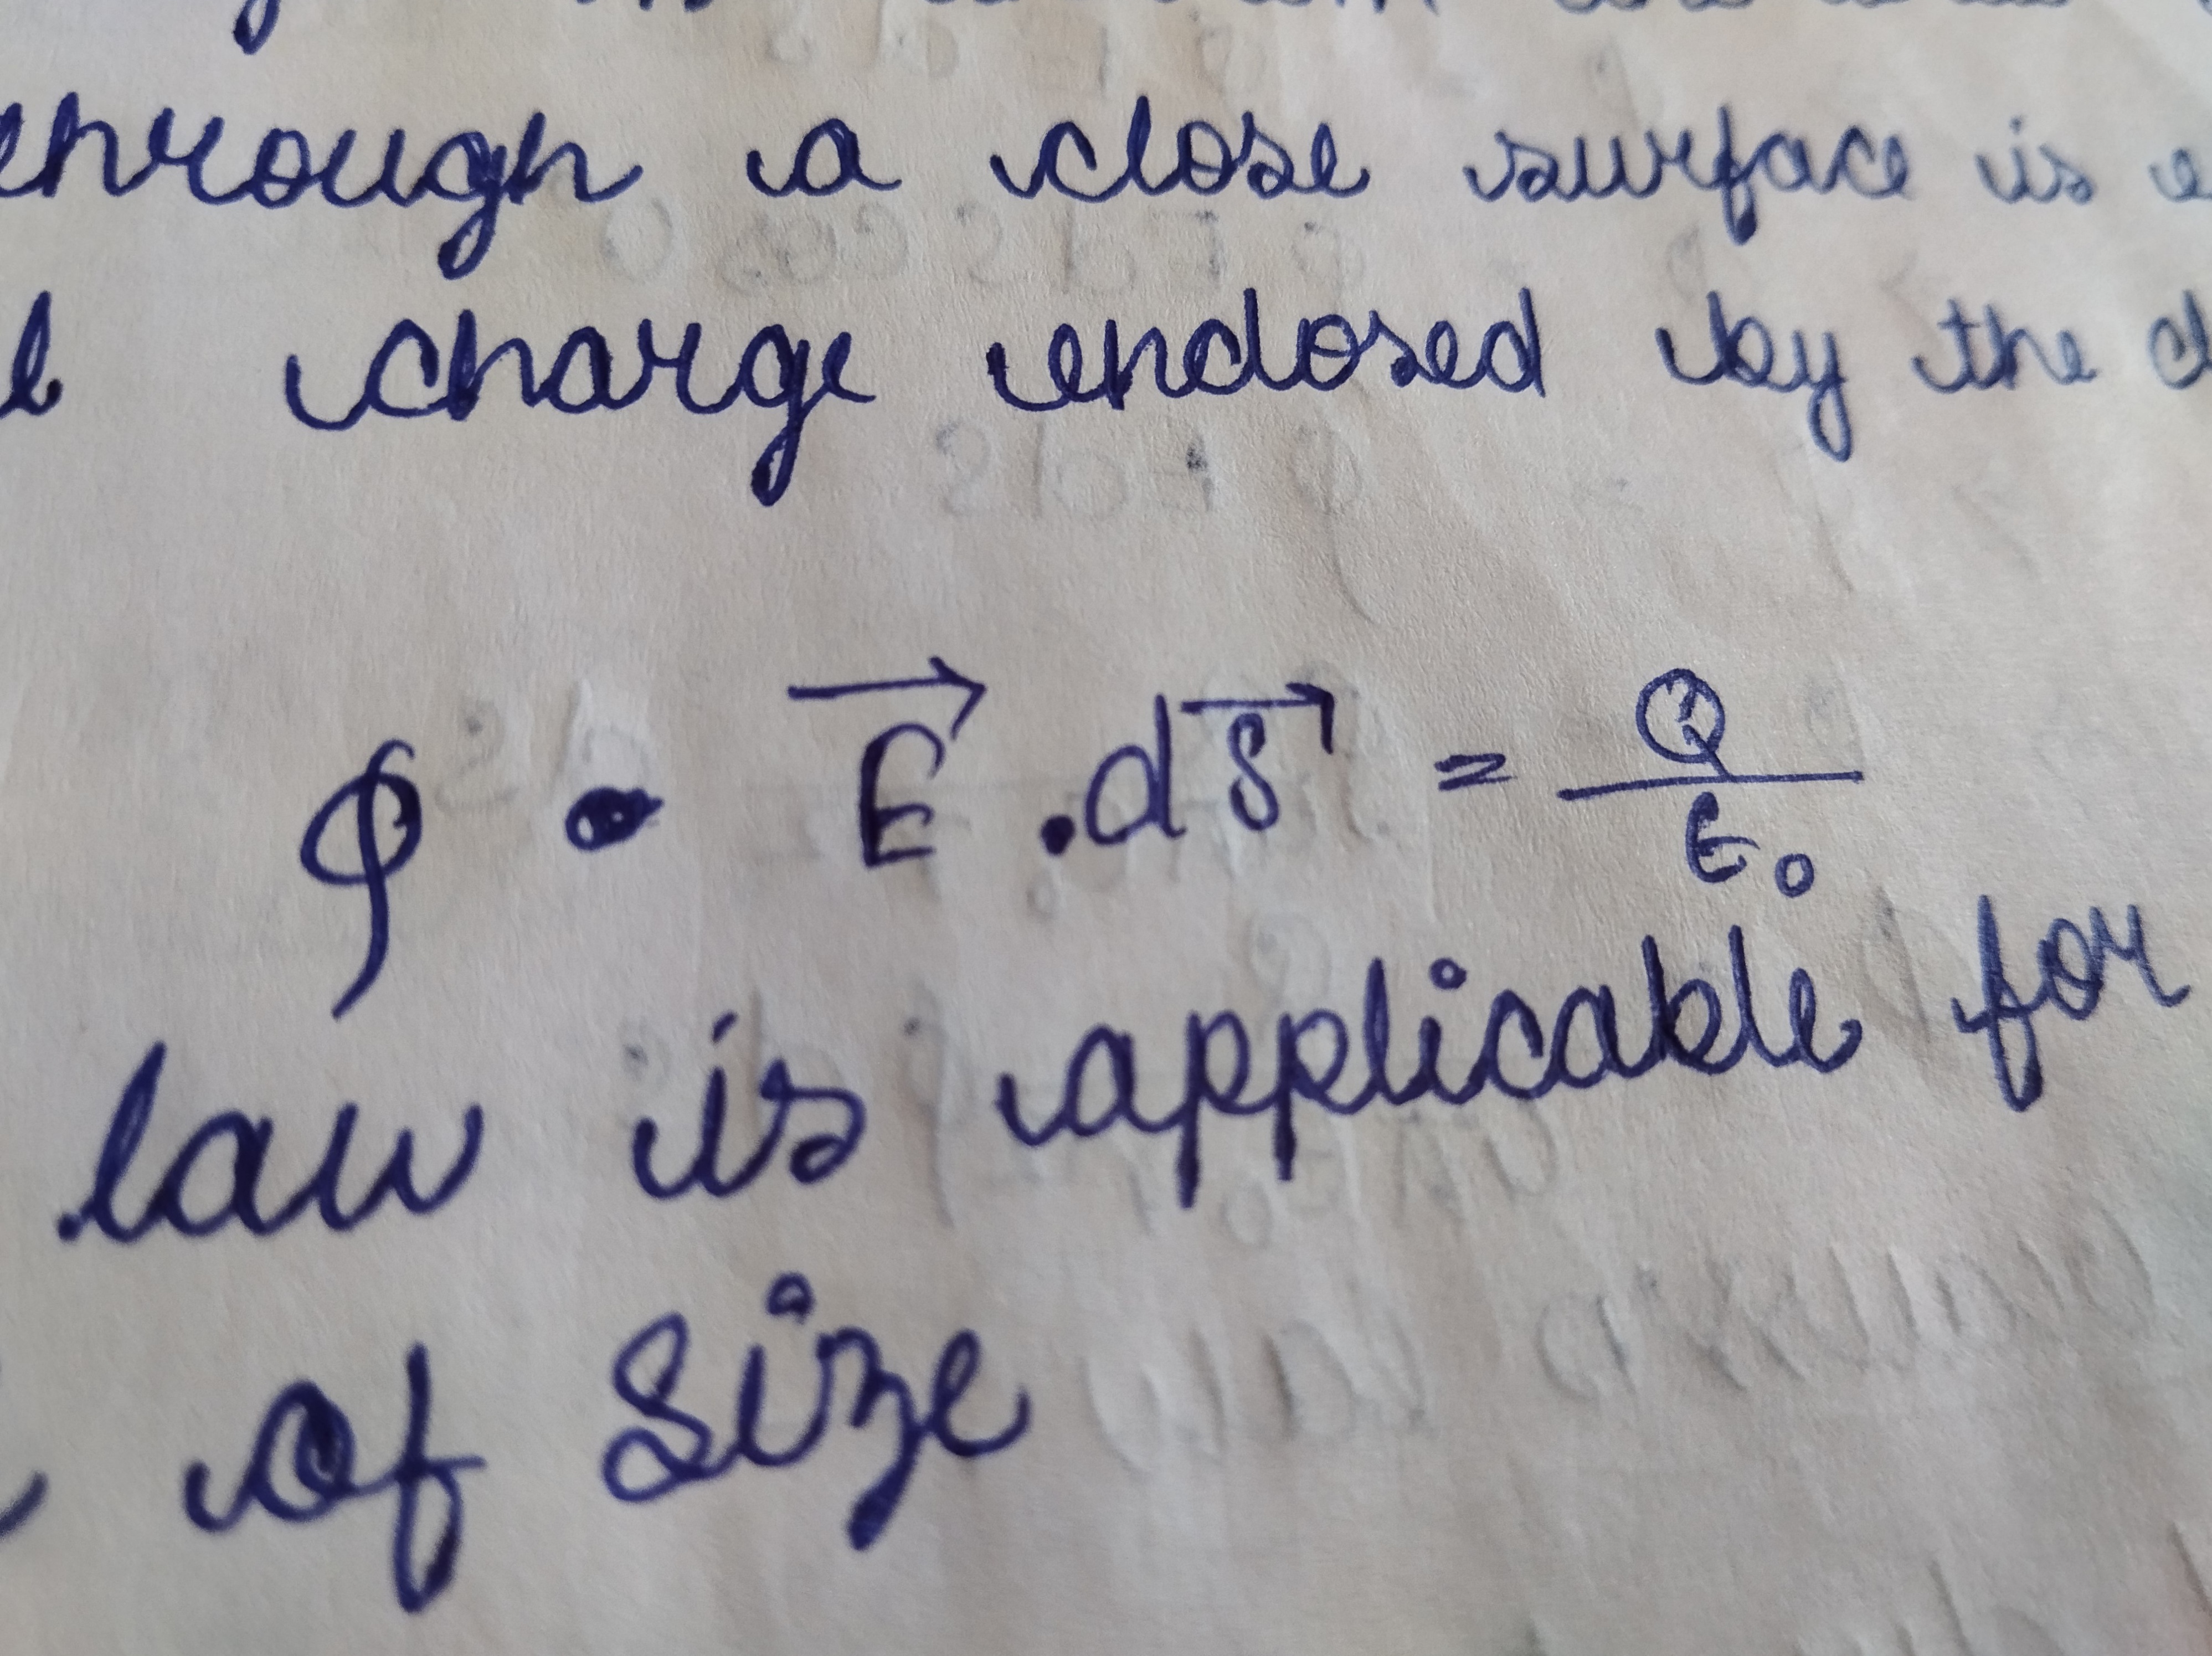 through a close surface is
charge enclosed by the
∮ • E⃗ .dS⃗ = Q/ε₀
law is applicable for
of size